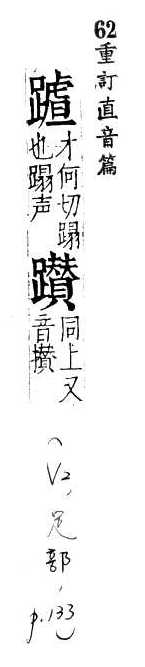 62重訂直音篇
才何切蹋
也蹋声
躦
同上又
音攢
(V2,足部,p.133)